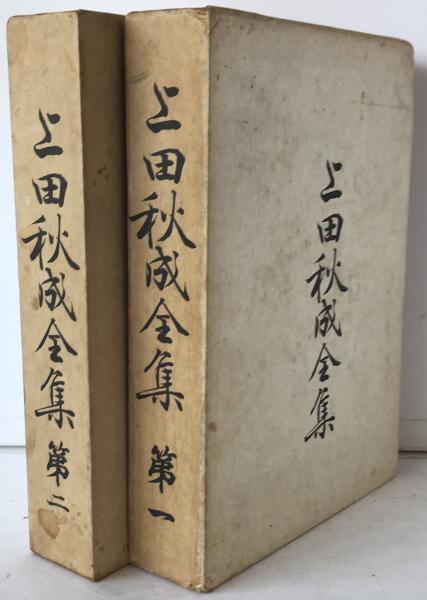 上田秋成全集
上田秋成全集 第一
上田秋成全集 第二